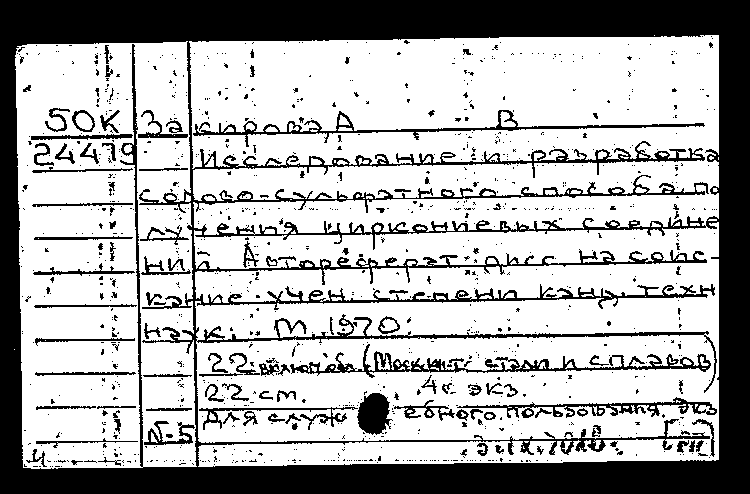 50К Закирова, А В
24479 Исследование и разработка
содово-сульфатного способа по
лучения циркониевых соедине
ний. Автореферат дисс. на соис-
кание учен. степени канд. техн
наук. М., 1970.
22 с включ. обл. (Моск ин-т стали и сплавов)
22 см. экз.
Для служебного пользования. Экз
№-5